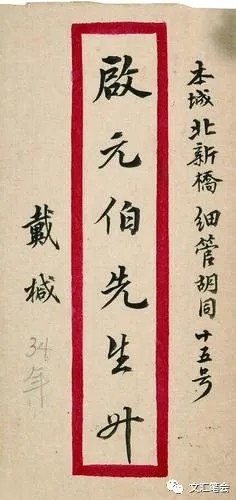 本城北新橋细管胡同十五号
啟元伯先生升
戴緘
34年
文汇笔会